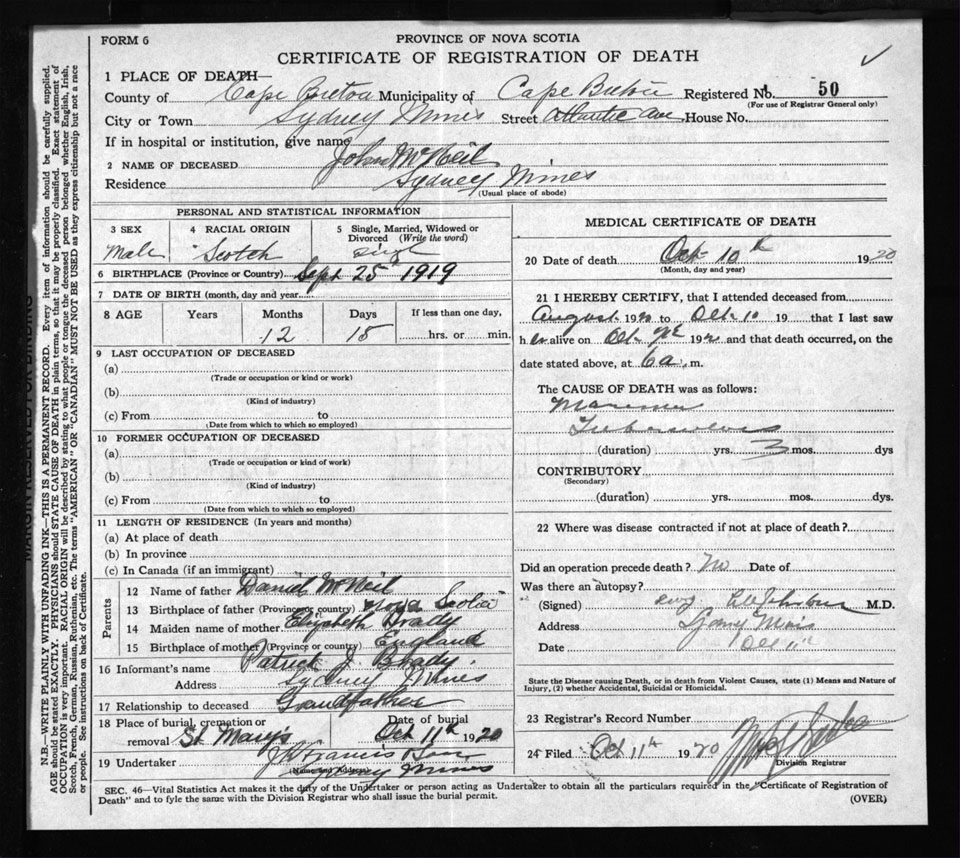 FORM 6
PROVINCE OF NOVA SCOTIA
CERTIFICATE OF REGISTRATION OF DEATH
1 PLACE OF DEATH—
County of Cape Breton Municipality of Cape Breton Registered No. 50
(For use of Registrar General only)
City or Town Sydney Mines Street Atlantic Ave House No.
If in hospital or institution, give name
2 NAME OF DECEASED John McNeil
Residence Sydney Mines
(Usual place of abode)
PERSONAL AND STATISTICAL INFORMATION
3 SEX 4 RACIAL ORIGIN 5 Single, Married, Widowed or Divorced (Write the word)
Male Scotch Single
6 BIRTHPLACE (Province or Country) Sept 25 1919
7 DATE OF BIRTH (month, day and year)
8 AGE Years Months Days If less than one day,
12 15 hrs. or min.
9 LAST OCCUPATION OF DECEASED
(a)
(Trade or occupation or kind or work)
(b)
(Kind of industry)
(c) From to
(Date from which to which so employed)
10 FORMER OCCUPATION OF DECEASED
(a)
(Trade or occupation or kind of work)
(b)
(Kind of industry)
(c) From to
(Date from which to which so employed)
11 LENGTH OF RESIDENCE (In years and months)
(a) At place of death
(b) In province
(c) In Canada (if an immigrant)
Parents
12 Name of father Daniel McNeil
13 Birthplace of father (Province or country) Nova Scotia
14 Maiden name of mother Elizabeth Brady
15 Birthplace of mother (Province or country) England
16 Informant's name Patrick J. Brady.
Address Sydney Mines
17 Relationship to deceased Grandfather
18 Place of burial, cremation or removal St Marys Date of burial Oct 11th 1920
19 Undertaker
(Name and Address) Sydney Mines
MEDICAL CERTIFICATE OF DEATH
20 Date of death Oct 10th 1920
(Month, day and year)
21 I HEREBY CERTIFY, that I attended deceased from
August 1920 to Oct 10 19 that I last saw
h alive on Oct 192 and that death occurred, on the
date stated above, at 6 a. m.
The CAUSE OF DEATH was as follows:
(duration) yrs. 3 mos. dys
CONTRIBUTORY
(Secondary)
(duration) yrs. mos. dys.
22 Where was disease contracted if not at place of death?
Did an operation precede death? No Date of
Was there an autopsy?
(Signed) M.D.
Address Sydney Mines
Date Oct 11th
State the Disease causing Death, or in death from Violent Causes, state (1) Means and Nature of Injury, (2) whether Accidental, Suicidal or Homicidal.
23 Registrar's Record Number
24 Filed Oct 11th 1920
Division Registrar
SEC. 46—Vital Statistics Act makes it the duty of the Undertaker or person acting as Undertaker to obtain all the particulars required in the "Certificate of Registration of
Death" and to fyle the same with the Division Registrar who shall issue the burial permit.
(OVER)
MARGIN RESERVED FOR BINDING
N.B.—WRITE PLAINLY WITH UNFADING INK—THIS IS A PERMANENT RECORD. Every item of information should be carefully supplied.
AGE should be stated EXACTLY. PHYSICIANS should STATE CAUSE OF DEATH in plain terms, so that it may be properly classified. Exact statement of
OCCUPATION is very important. RACIAL ORIGIN will be described by stating to what people or tongue the deceased person belonged whether English, Irish,
Scotch, French, German, Russian, Ruthenian, etc. The terms "AMERICAN" OR "CANADIAN" MUST NOT BE USED as they express citizenship but not a race
or people. See instructions on back of Certificate.